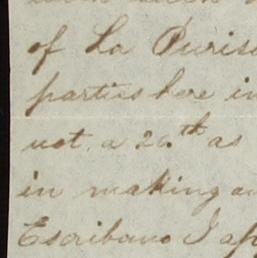 of La Puris
parties here in
not. a 20th as
in making a
Escribano I ap